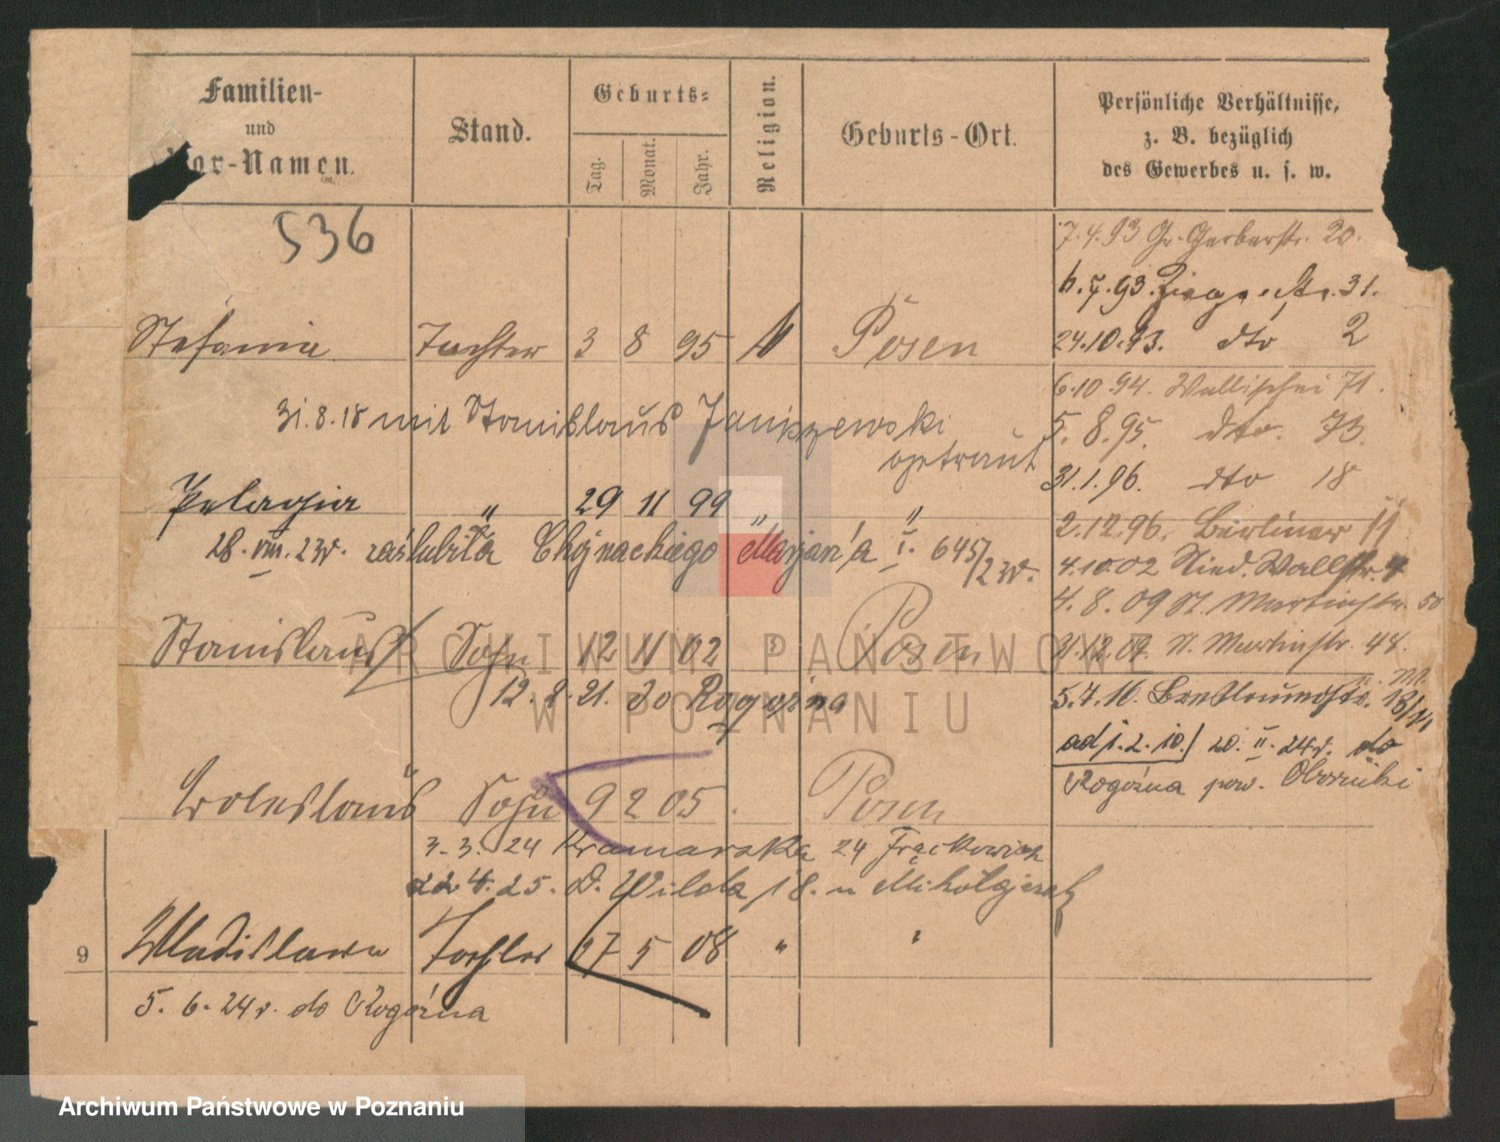 Familien-
und
Vor-Namen.
Stand.
Geburts-
Tag.
Monat.
Jahr.
Religion.
Geburts-Ort.
Persönliche Verhältnisse,
z. B. bezüglich
des Gewerbes u. s. w.
536
7.4.93 Gr. Gerberstr. 20.
6.7.93. 31.
24.10.93. dto 2
Stefania Tochter 3 8 95 Posen
6.10.94. Wallischei 71.
31.8.18 mit Stanislaus Janiszewski
getraut
5.8.95. dto. 73.
31.1.96. dto 18
Pelagia " 29 11 99 " "
2.12.96. Berliner 11
28.VIII.23r. zaślubiła Chojnackiego Marjan'a I. 645/23r.
4.10.02 Nied. Wallstr. 4
4.8.09 St. Martinstr. 50
Stanislaus Sohn 12 11 02 " Posen
31.12.09. St. Martinstr. 48.
12.8.21. do Rogoźna
5.7.10. 13/14
ad 1.2.10.) 20.II.24r. do
Rogoźna pow. Obornicki
Boleslaus Sohn 9 2 05. Posen
3.3.24 Kramarska 24 Frąckowiak
22.4.25. D. Wilda 18. u Mikołajczak
9 Wladislawa Tochter 27 5 08 " "
5.6.24r. do Rogoźna
ARCHIWUM PAŃSTWOWE
W POZNANIU
Archiwum Państwowe w Poznaniu